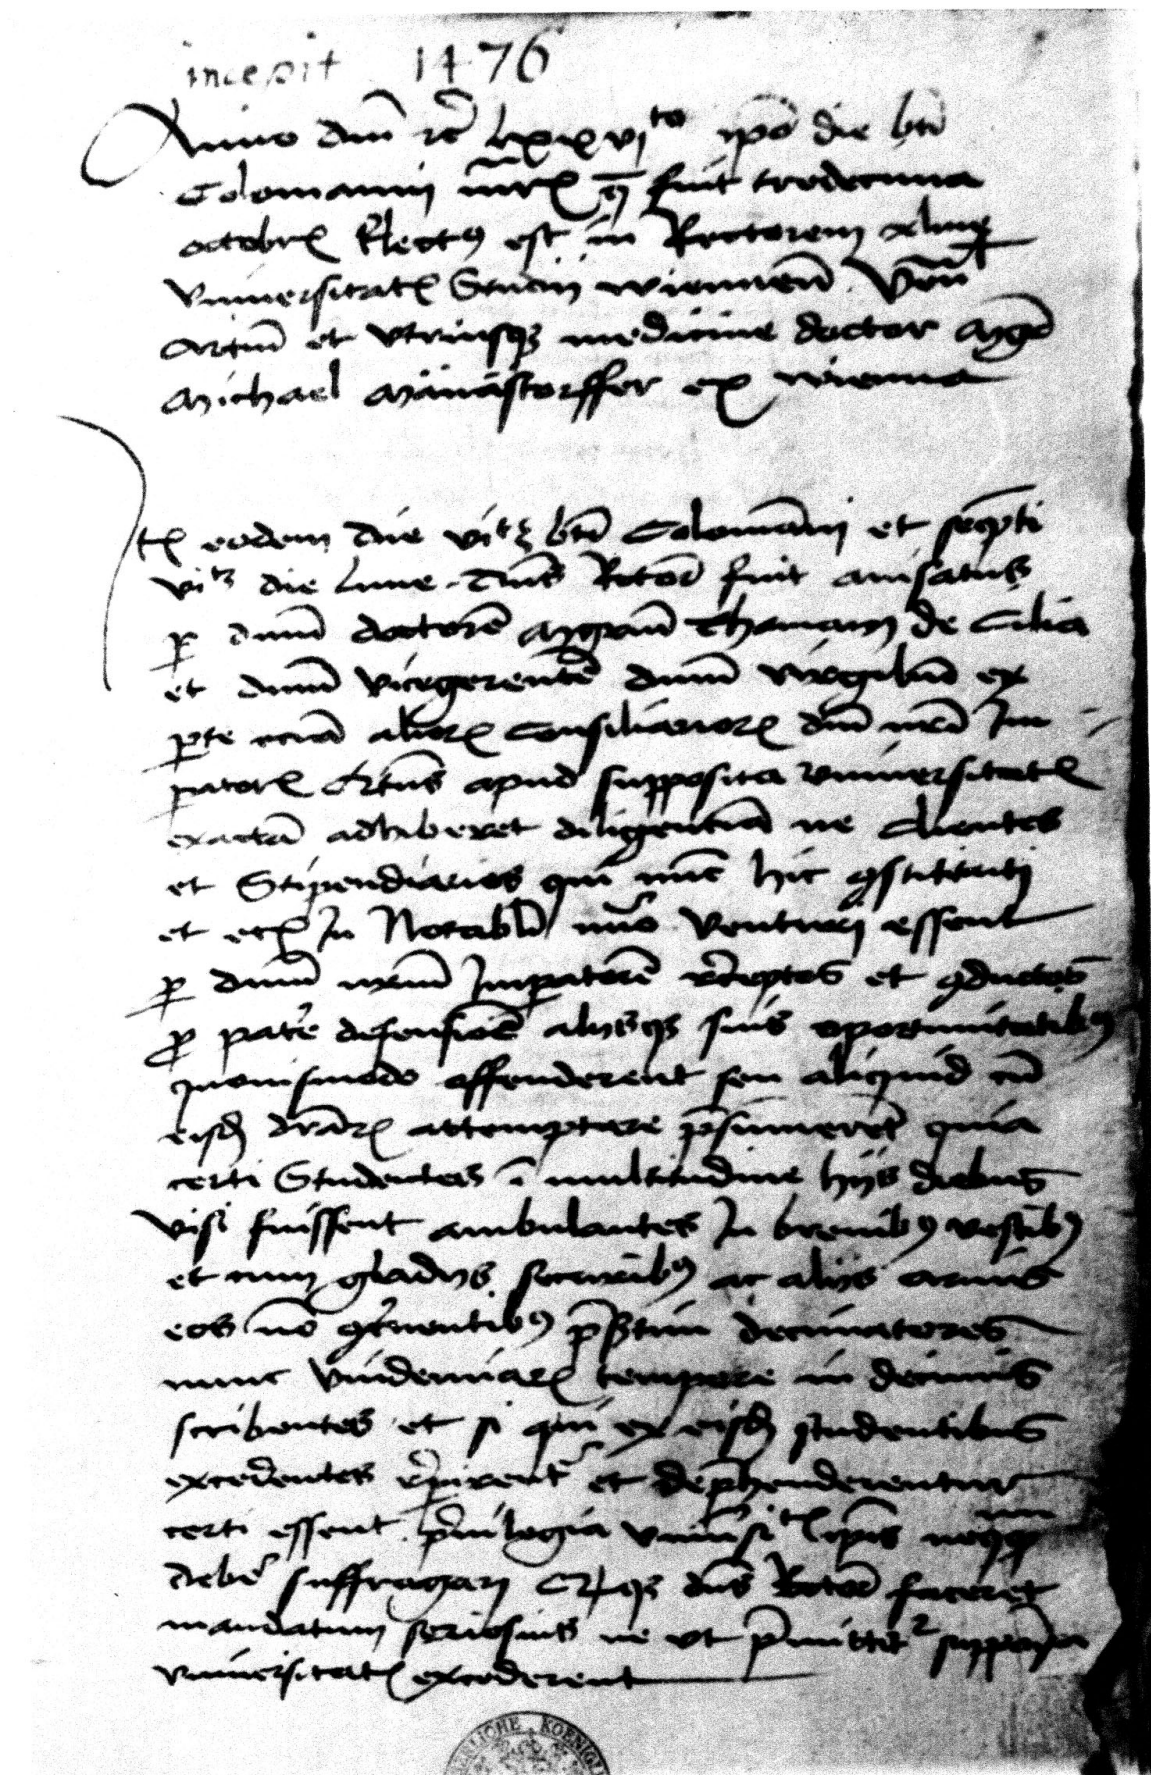 incepit 1476
Anno dni rc lxxvito ipo die bti
Colomanni mris q fuit tredecima
octobris Electus est in Rectorem alme
vniversitatis Studii wiennen Vén
artium et vtriusque medicine doctor Mgr
Michael Mänästorffer ex wienna
eodem die vitz bti Colomanni et
vitz die lune dns Rector fuit auisatus
per dnum doctorem Mgrum Thomam de Cilia
et dnum vicegerentem dnum virgilium ex
parte eciam aliorum Consiliariorum dni nri Im
peratoris apud supposita vniversitatis
exactam adhiberet diligenciam ne clientes
et Stipendiarios qui nunc hic constituti
et etc In Notabili nuo venturi essent
per dnum nrum Imperatorem receptos et conductos
pro patrie defensione aliisque suis oportunitatibus
quouismodo offenderent seu aliquid cum
eisdem attemptare presumerent quia
certi Studentes in multitudine hiis diebus
visi fuissent ambulantes In breuibus vestibus
et cum gladiis securibus ac aliis armis
eos non concernentibus presertim decimatores
nunc vindemiarum tempore in decimis
scribentes et si qui ex eisdem studentibus
excedentes reperirentur et deprehenderentur
certi essent priuilegia vniuersitatis ipsis
debere suffragari dns Rector faceret
mandatum seriosius ne vt premittitur supposita
vniuersitatis excederent